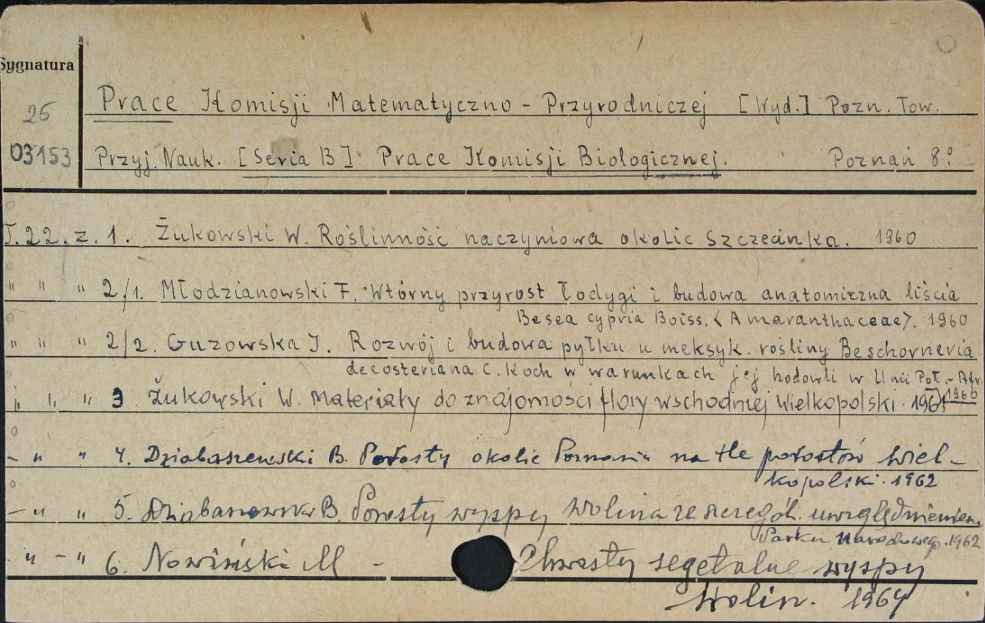 Sygnatura
25
03153
Prace Komisji Matematyczno - Przyrodniczej [Wyd.] Pozn. Tow.
Przyj. Nauk. [Seria B]: Prace Komisji Biologicznej. Poznań 8°
T. 22. z. 1. Żukowski W. Roślinność naczyniowa okolic Szczecinka. 1960
" " " 2/1. Młodzianowski F. Wtórny przyrost łodygi i budowa anatomiczna liścia
Besea cypria Boiss. <Amaranthaceae>. 1960
" " " 2/2. Guzowska I. Rozwój i budowa pyłku u meksyk. rośliny Beschorneria
decosteriana C. Koch w warunkach jej hodowli w Unii Poł.-Afr.
1960
" " " 3 Żukowski W. Materiały do znajomości flory wschodniej Wielkopolski. 1961
- " " 4. Dziabaszewski B. Porosty okolic Poznania na tle porostów Wiel-
kopolski. 1962
- " " 5. B. Porosty wyspy Wolina ze szczegól. uwzględnieniem
Parku Narodowego. 1962
" - " 6. Nowiński M - Chwasty segetalne wyspy
Wolin. 1964